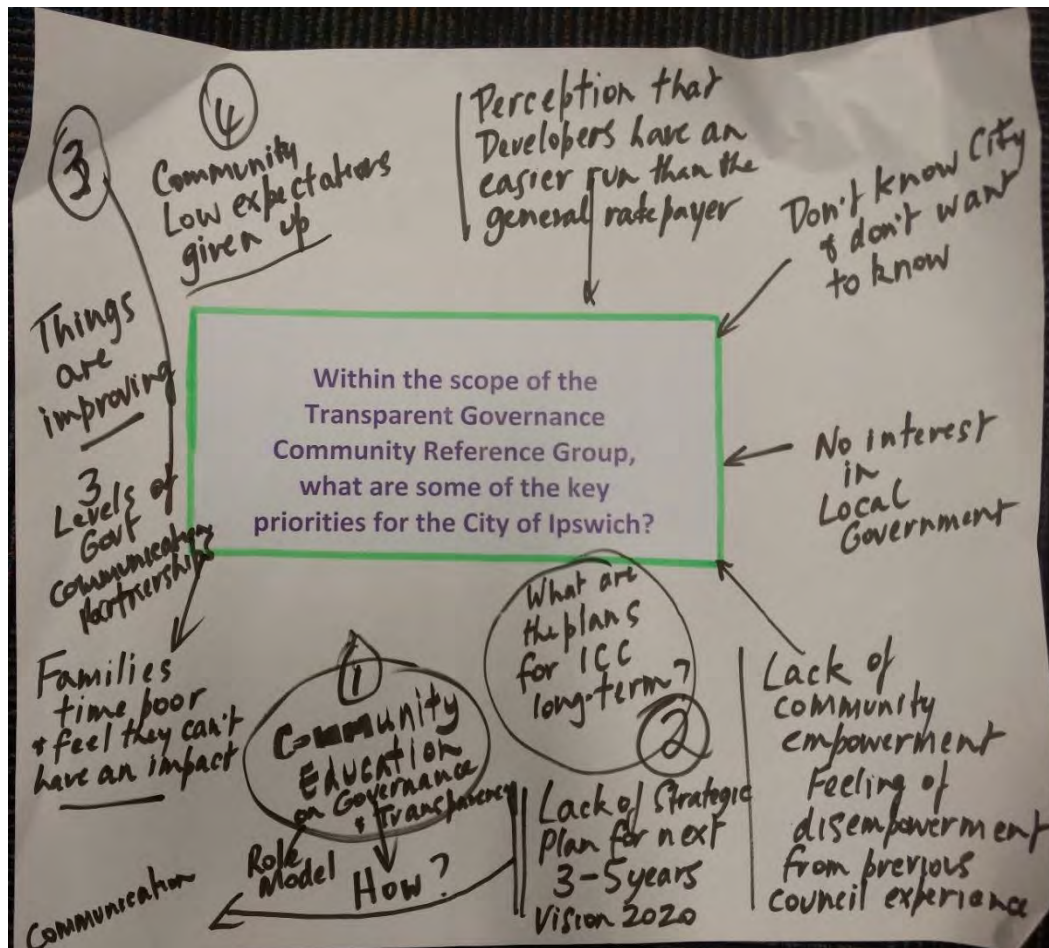 3
4
Community
Low expectations
given up
Perception that
Developers have an
easier run than the
general ratepayer
Don't know City
& don't want
to know
Things
are
improving
Within the scope of the
Transparent Governance
Community Reference Group,
what are some of the key
priorities for the City of Ipswich?
No interest
in
Local
Government
3
Levels of
Govt
Communication
Partnerships
Families
time poor
& feel they can't
have an impact
1
Community
Education
on Governance
& Transparency
Role
Model
How?
Communication
What are
the plans
for ICC
long-term?
2
Lack of Strategic
Plan for next
3-5 years
Vision 2020
Lack of
community
empowerment
Feeling of
disempowerment
from previous
council experience